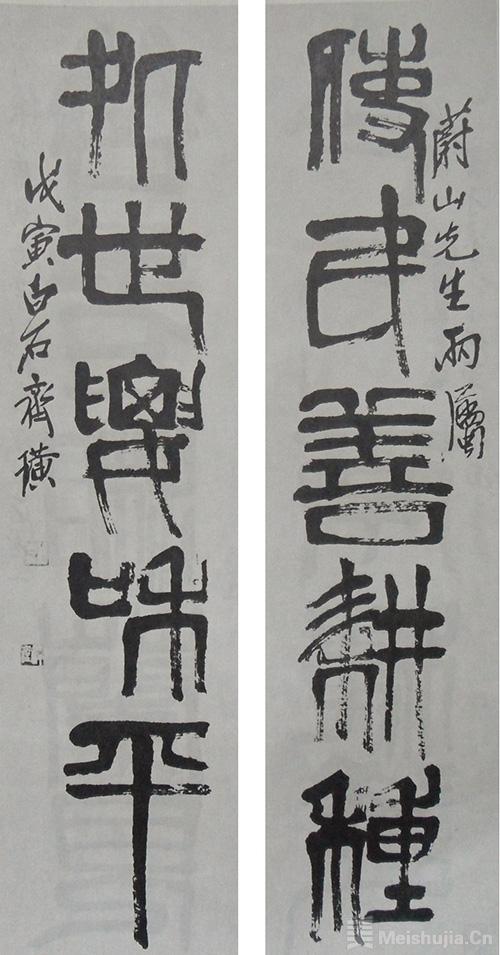 使民善耕種
蔚山先生兩屬
祈世要和平
戊寅白石齊璜
Meishujia.Cn